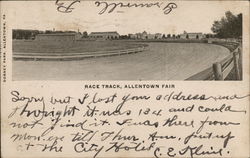 Granville Pa
DORNEY PARK, ALLENTOWN, PA.
RACE TRACK, ALLENTOWN FAIR
Sorry but I lost your address and
thought it was 124 and could
not find it. I was there from
Mon. er till Thur. Am. put up
at the City Hotel.
C. E. Kline.